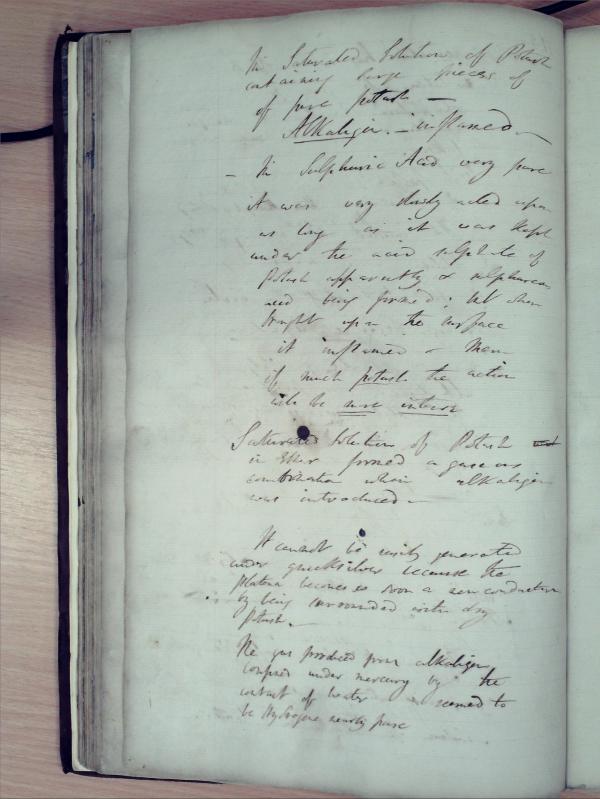 In Saturated Solution of Potash
containing large pieces of
of pure potash —
Alkaligen. — inflamed —
— In Sulphuric Acid very pure
it was very slowly acted upon
as long as it was kept
under the acid sulphate of
Potash apparently & sulphureous
acid being formed; but when
brought upon the surface
it inflamed &
if much potash the action
will be more intense
Saturated Solution of Potash
in Ether formed a gaseous
combination when alkaligen
was introduced —
It cannot be easily generated
under quicksilver because the
platina becomes soon a non conductor
by being surrounded with dry
Potash. —
The gas produced from alkaligen
confined under mercury by the
contact of water seemed to
be Hydrogene nearly pure